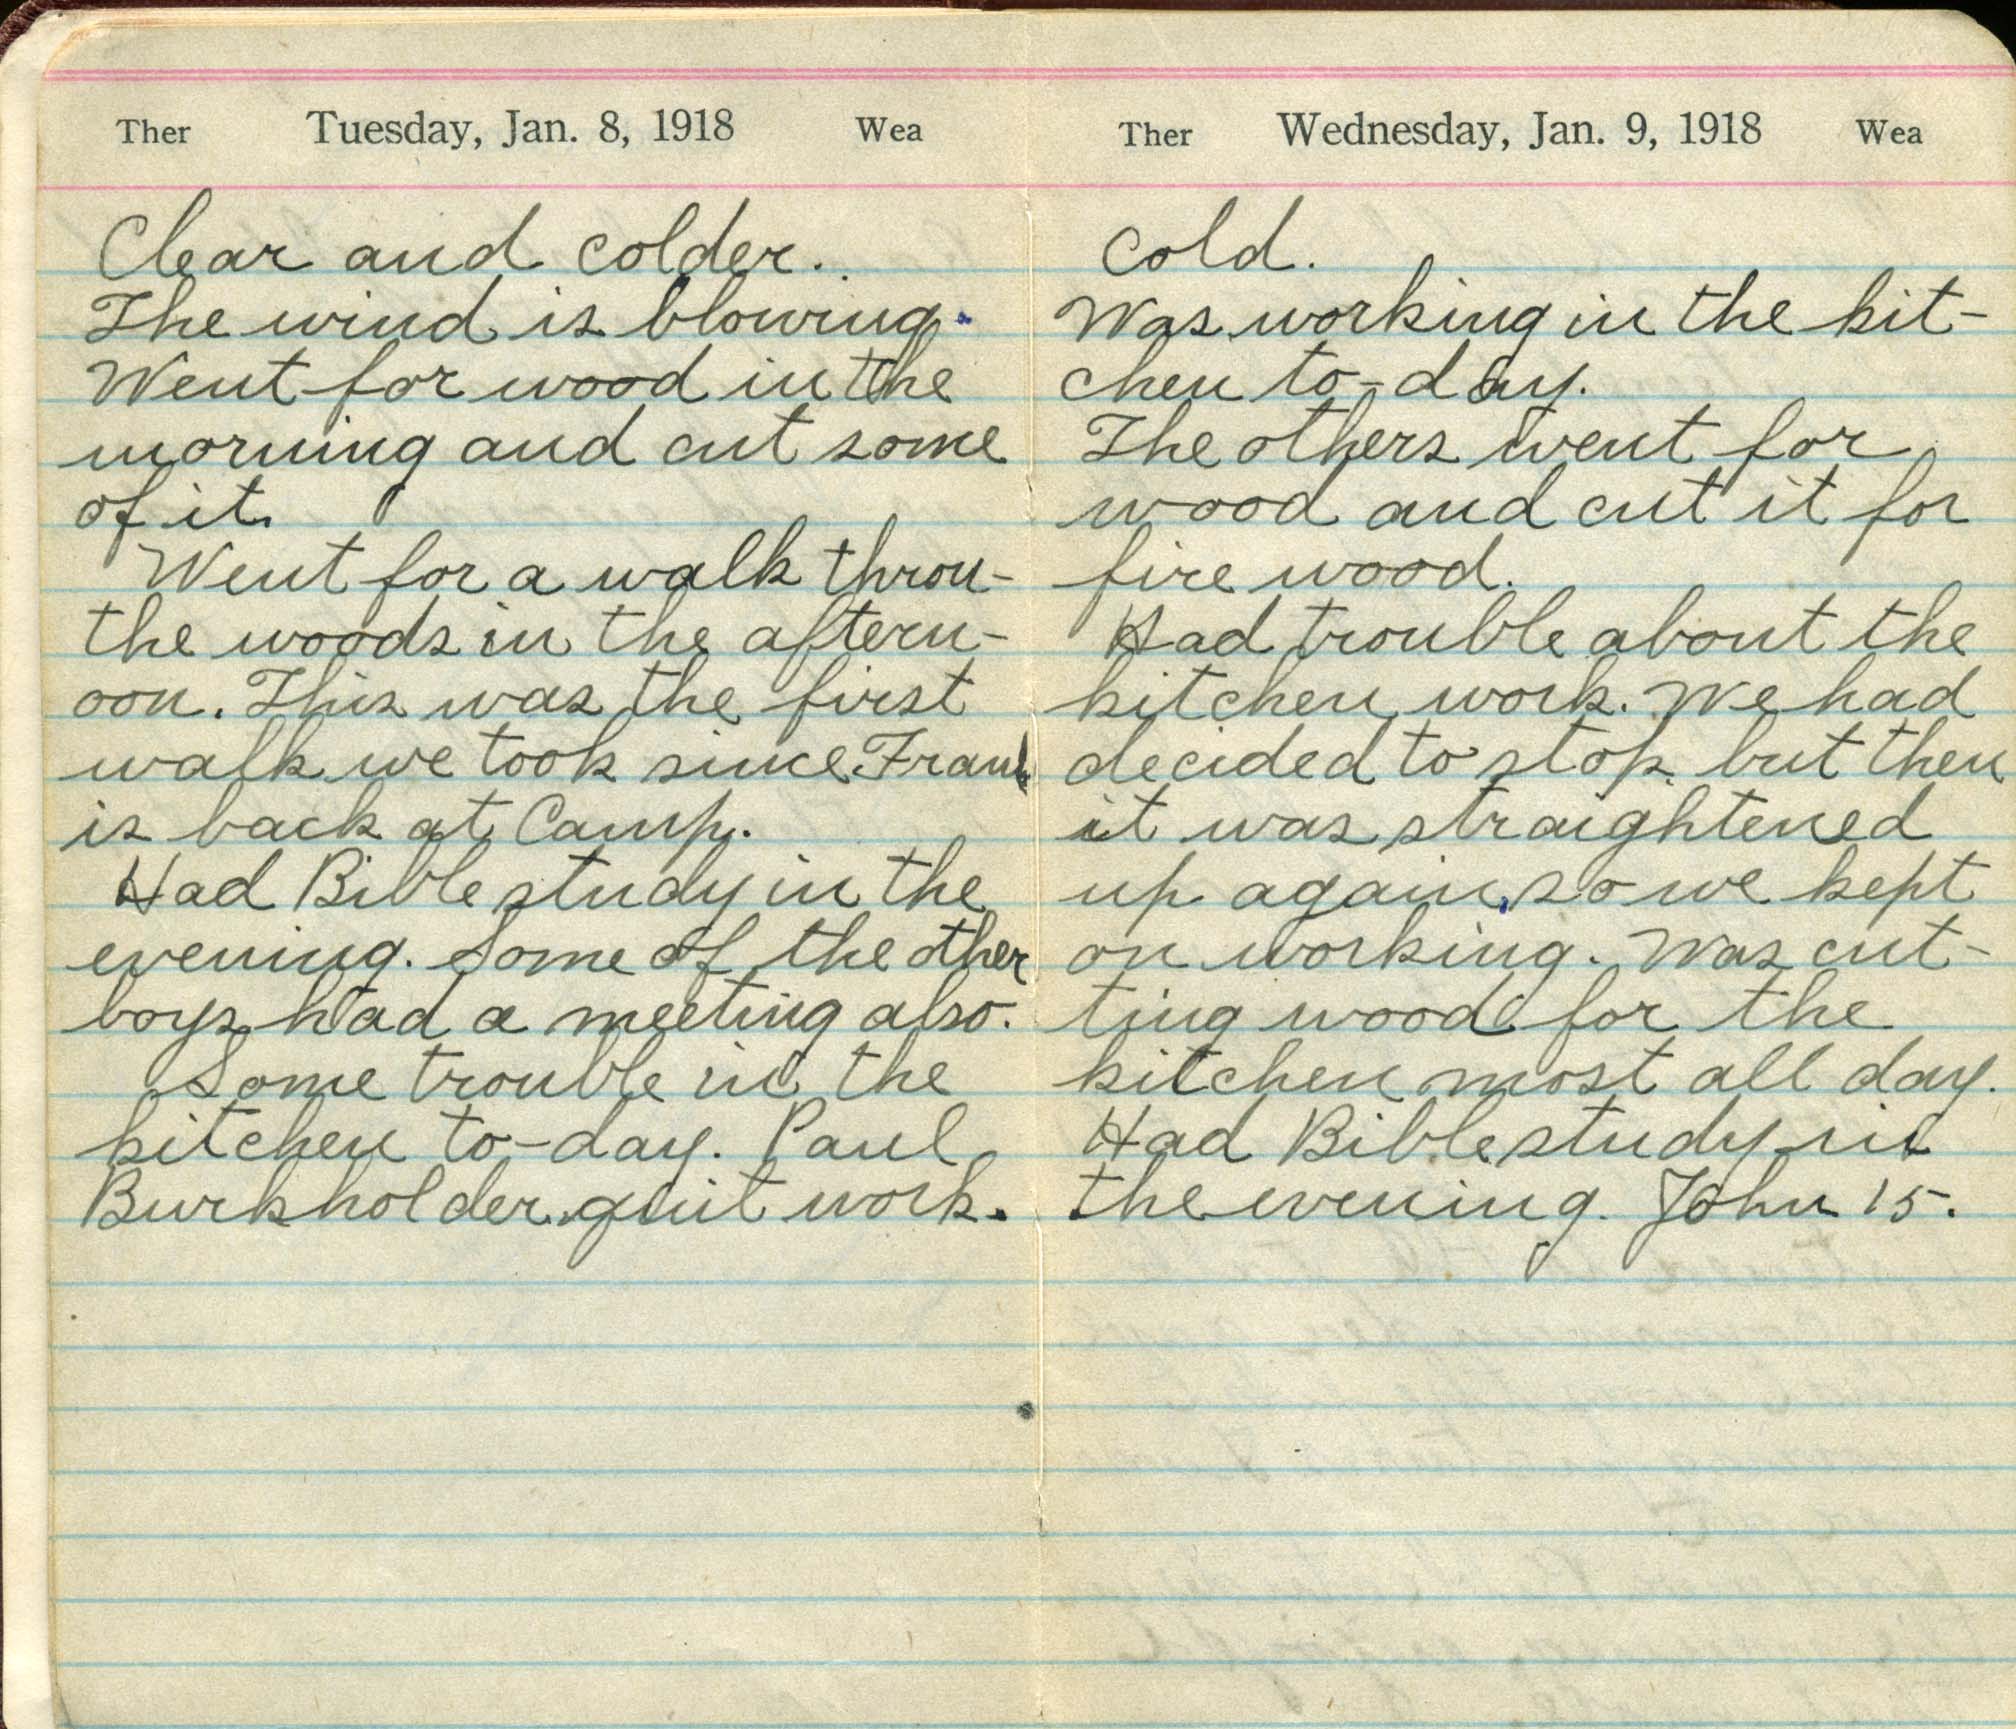 Ther Tuesday, Jan. 8, 1918 Wea
Clear and colder.
The wind is blowing.
Went for wood in the
morning and cut some
of it.
Went for a walk throu-
the woods in the aftern-
oon. This was the first
walk we took since Frank
is back at Camp.
Had Bible study in the
evening. Some of the other
boys had a meeting also.
Some trouble in the
kitchen to-day. Paul
Burkholder quit work.
Ther Wednesday, Jan. 9, 1918 Wea
Cold.
Was working in the kit-
chen to-day.
The others went for
wood and cut it for
fire wood.
Had trouble about the
kitchen work. We had
decided to stop but then
it was straightened
up again, so we kept
on working. Was cut-
ting wood for the
kitchen most all day.
Had Bible study in
the evening. John 15.